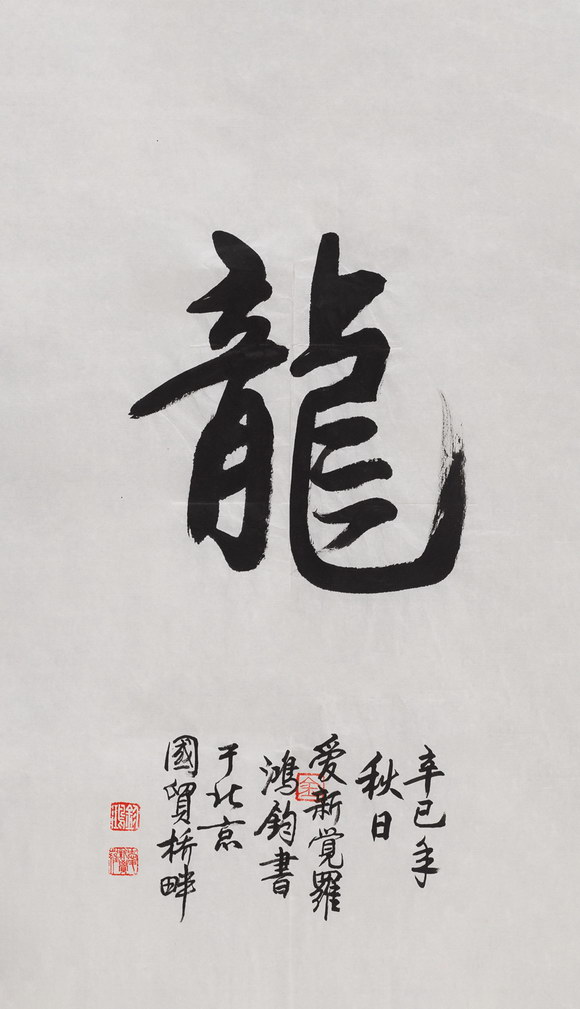 龍
辛巳年
秋日
愛新覚羅
鴻鈞書
于北京
國貿橋畔